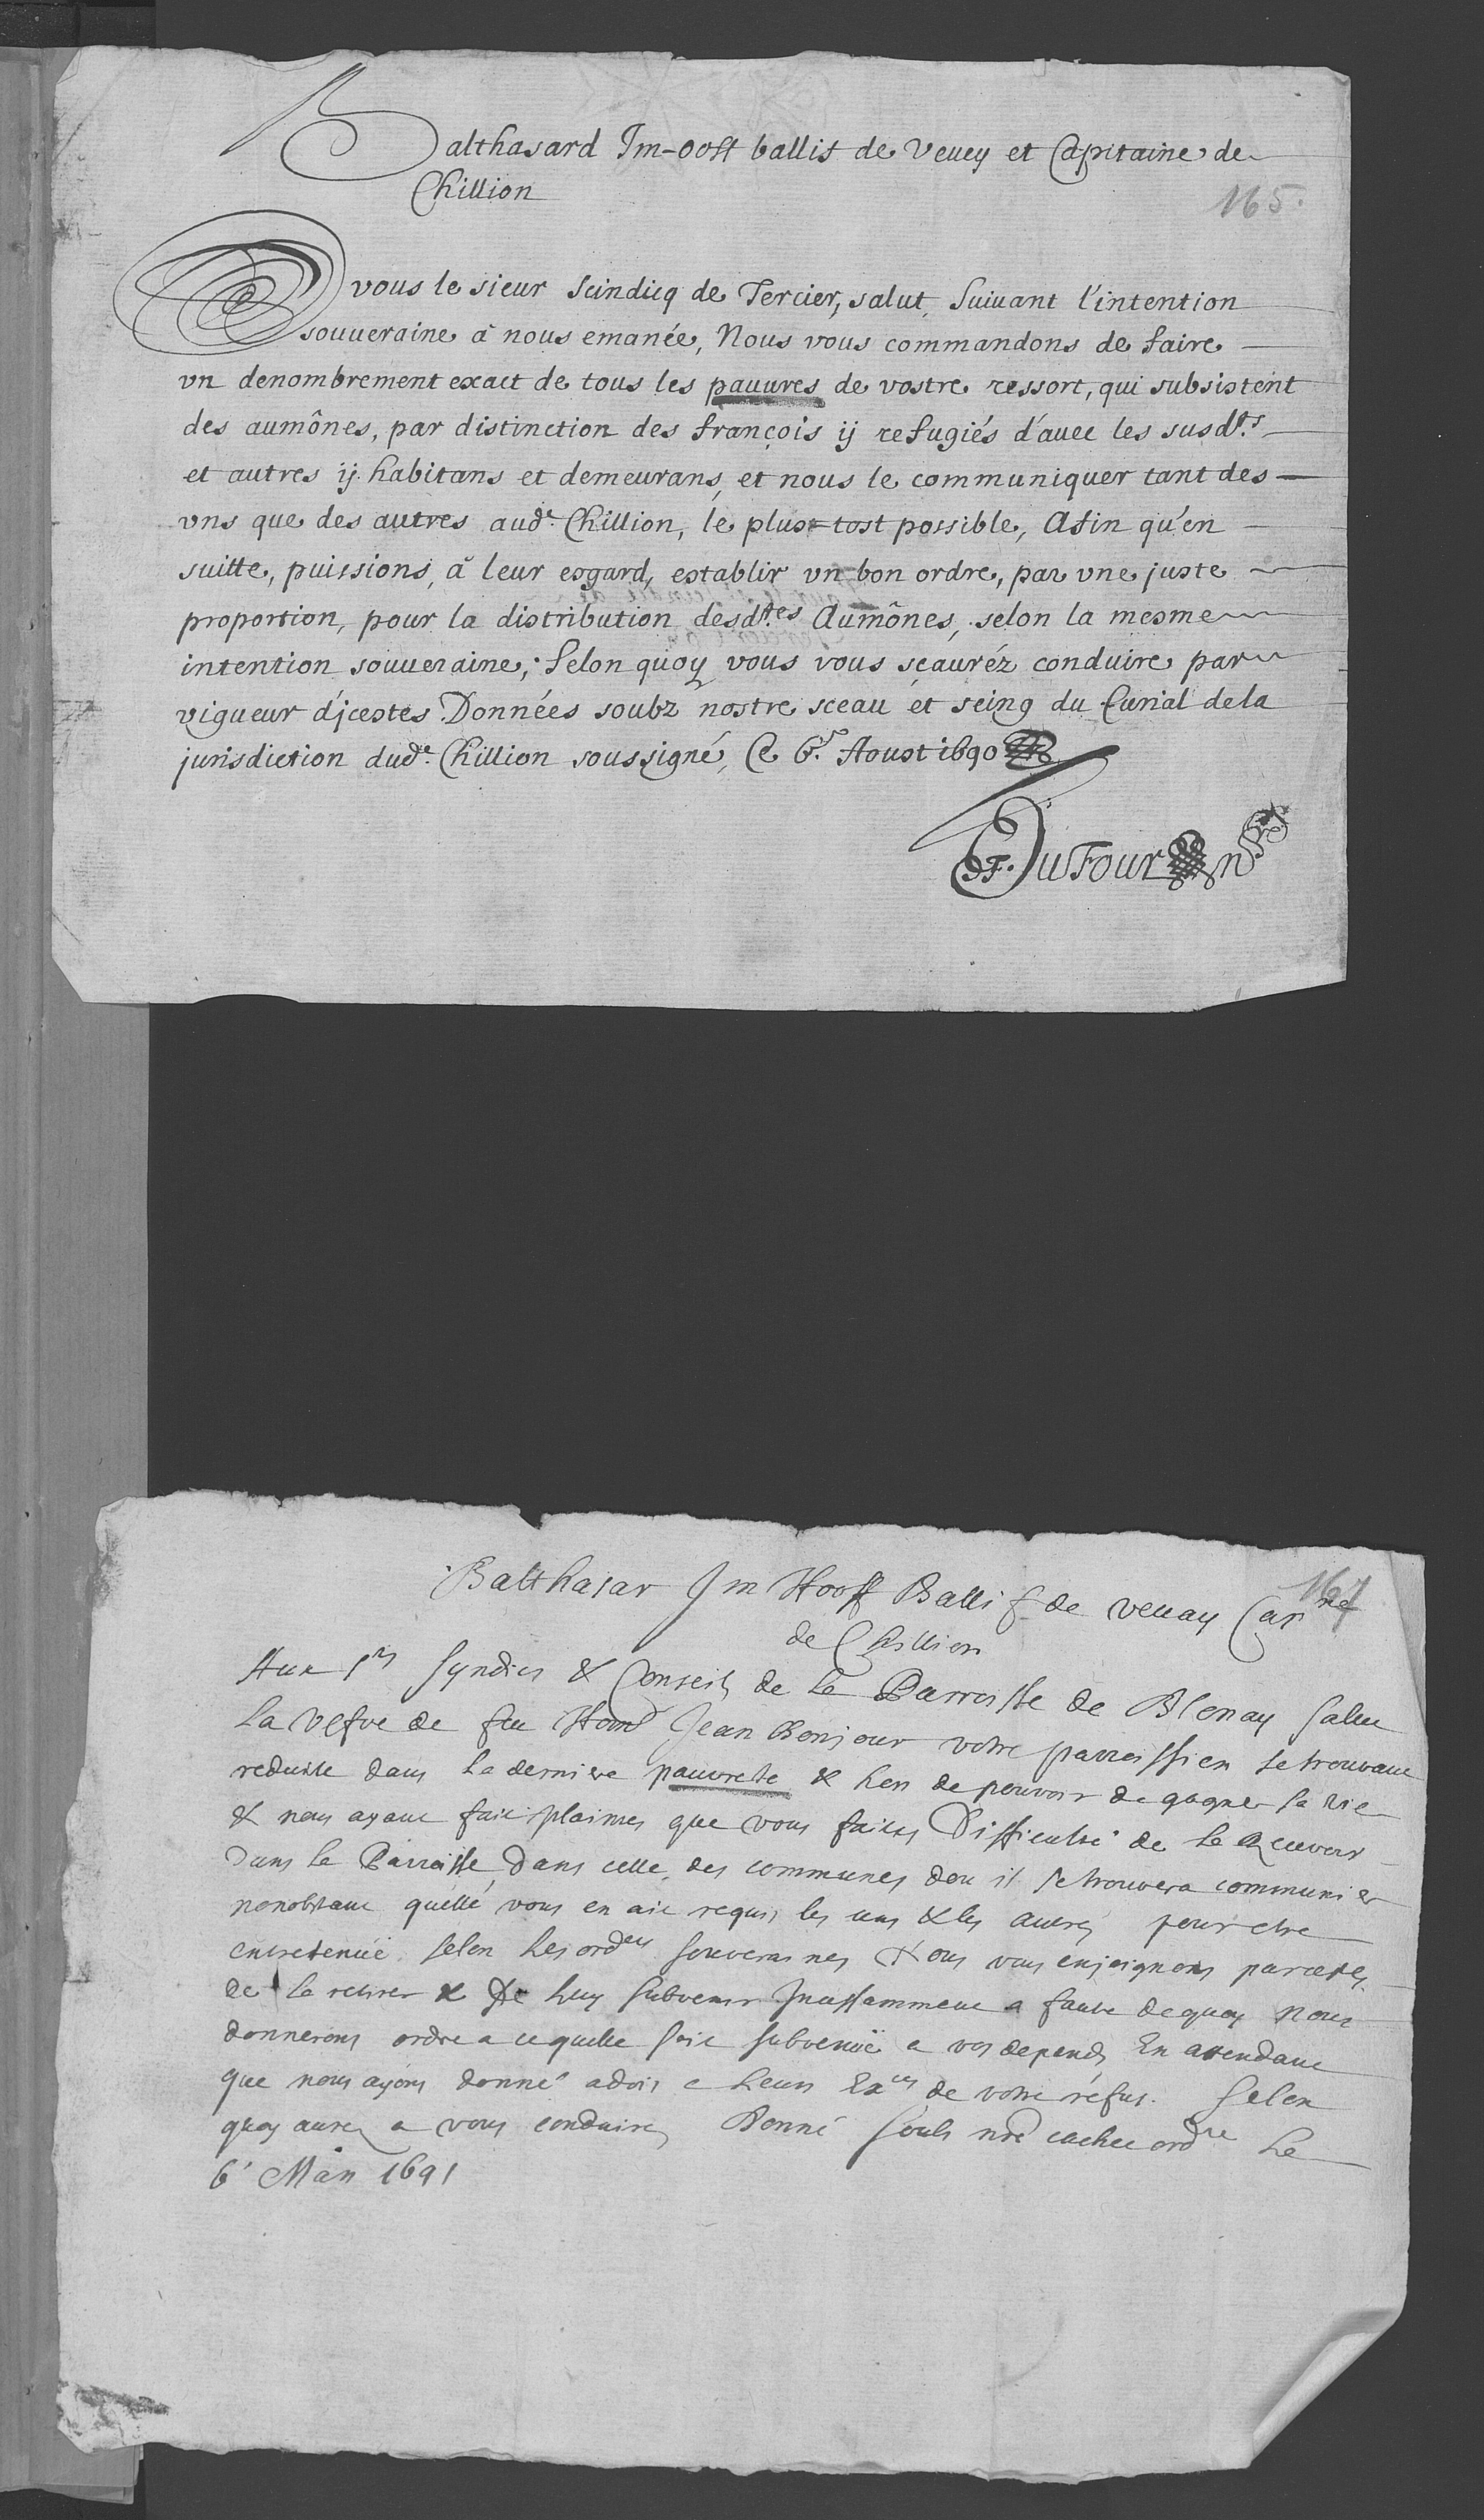 Balthasard Im-ooff ballif de Veuey et Capitaine de
Chillion
165.
A vous le sieur scindicq de Tercier, salut, Suiuant l'intention
souueraine à nous emanée, Nous vous commandons de faire
vn denombrement exact de tous les pauures de vostre ressort, qui subsistent
des aumônes, par distinction des françois ij refugiés d'auec les susdts
et autres ij habitans et demeurans, et nous le communiquer tant des
vns que des autres aude Chillion, le plus-tost possible, Afin qu'en
suitte, puissions, à leur esgard, establir vn bon ordre, par vne juste
proportion, pour la distribution desdttes Aumônes, selon la mesme
intention souueraine, Selon quoy vous vous sçauréz conduire par
vigueur d'jcestes. Données soubz nostre sceau et seing du Curial de la
jurisdiction dude Chillion soussigné, Ce 6e Aoust 1690
DuFour
167
Balthasar Im Hooff Ballif de vevay Capne
de Chillion
Aux srs Syndics & Conseils de la Parroisse de Blonay Salut
La vefve de feu Hond Jean Bonjour votre parroissien se trouvant
reduitte dans la derniere pauvrete & hors de pouvoir de gagner sa vie
& nous ayant fait plaintes que vous faites Difficulté de la Recevoir
dans la Parroisse, dans celle des communes dou il se trouvera communier
nonobstant quelle vous en aie requis les uns & les autres pour etre
entretenuë selon les ordres souveraines Nous vous enjoignons par cestes
de la retirer & de luy subvenir Incessamment a faute de quoy nous
donnerons ordre a ce quelle soit subvenuë a vos depends En attendant
que nous ayons donné advis a Leurs Exces de votre refus. Selon
quoy aurez a vous conduire, Donné soubs nre cachet ordre Le
6e Mars 1691